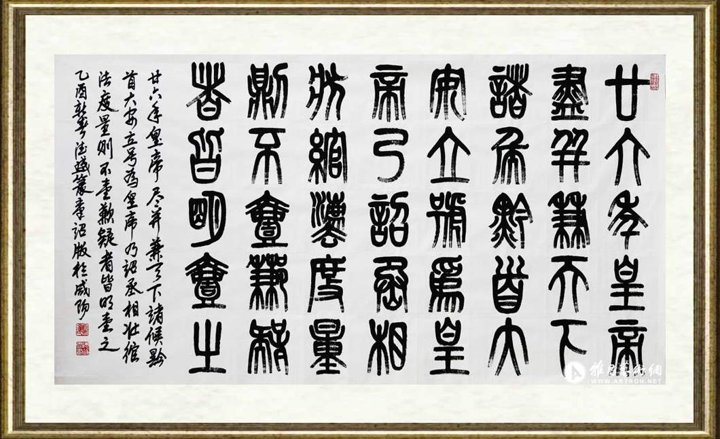 廿六年皇帝
盡并兼天下
諸侯黔首大
安立號爲皇
帝乃詔丞相
狀綰灋度量
則不壹歉疑
者皆明壹之
廿六年皇帝尽并兼天下諸候黔
首大安立号為皇帝乃詔丞相壯綰
法度量则不壹歉疑者皆明壹之
乙酉新春 秦詔版於咸陽
雅昌艺術網
WWW.ARTRON.NET